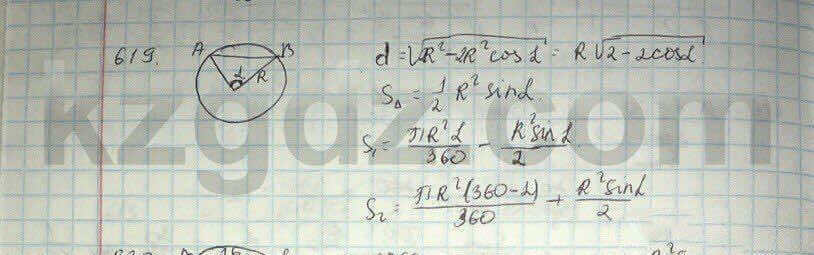 619. A B α R d = √R² - 2R² cos α = R √2 - 2cos α
S△ = 1/2 R² sin α.
S₁ = πR² α / 360 - R² sin α / 2
S₂ = πR² (360 - α) / 360 + R² sin α / 2
kzgdz.com